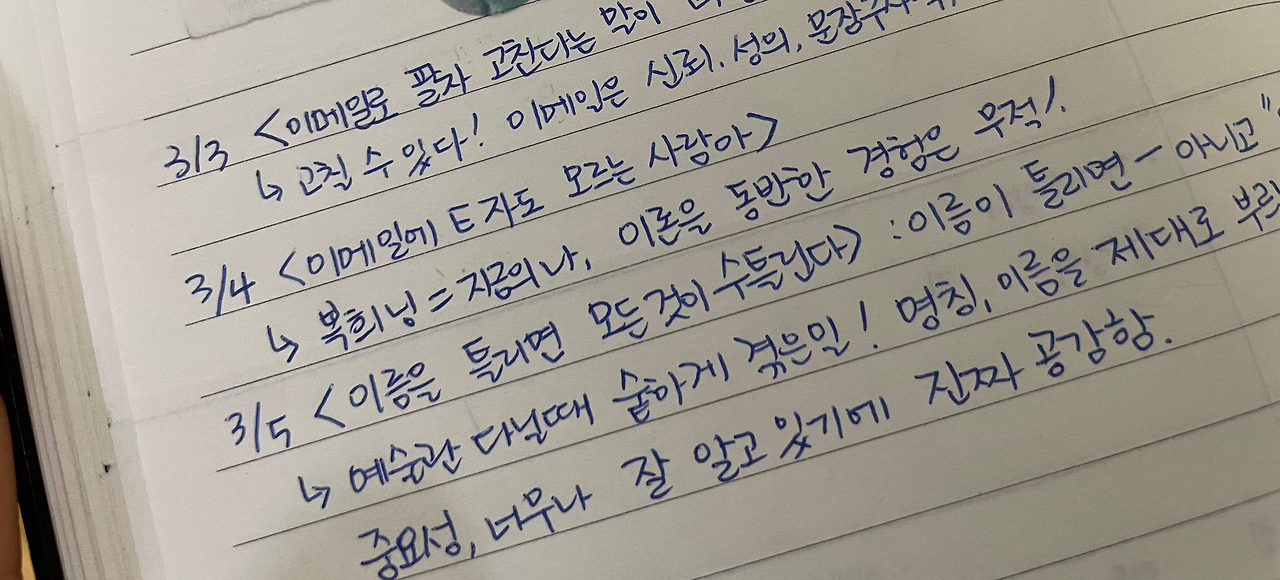 3/3 <이메일로 팔자 고친다는 말이
↳ 고칠 수 있다! 이메일은 신뢰, 성의, 문장구사
3/4 <이메일에 E자도 모르는 사람아>
↳ 복희닝 = 지금의 나, 이론을 동반한 경험은 무적!.
3/5 <이름을 틀리면 모든것이 수틀린다> : 이름이 틀리면 - 아니고 "
↳ 예술관 다닐때 숱하게 겪은일! 명칭, 이름을 제대로
중요성, 너무나 잘 알고 있기에 진짜 공감함.